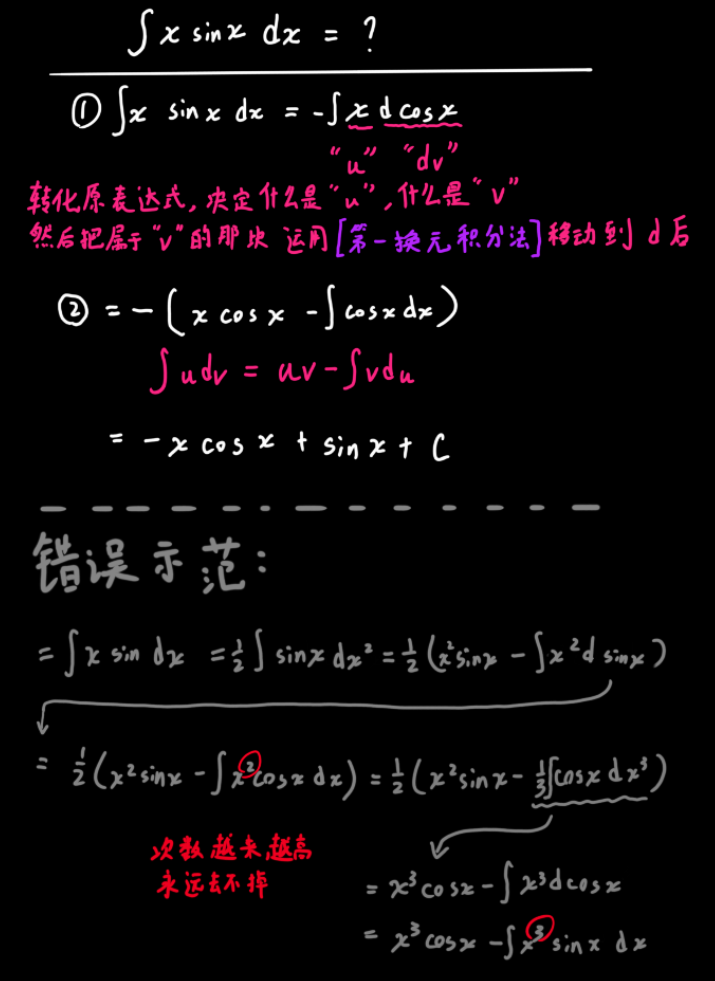 ∫ x sinx dx = ?
① ∫x sinx dx = -∫ x d cosx
"u" "dv"
转化原表达式, 决定什么是"u", 什么是"v"
然后把属于"v"的那块 运用[第一换元积分法]移动到 d 后
② = -(x cosx - ∫cosx dx)
∫udv = uv - ∫vdu
= -x cosx + sinx + C
错误示范:
= ∫x sin dx = ½∫ sinx dx² = ½(x²sinx - ∫x²d sinx)
= ½(x²sinx - ∫x²cosx dx) = ½(x²sinx - ⅓∫cosx dx³)
次数越来越高
永远去不掉
= x³cosx - ∫x³dcosx
= x³cosx - ∫x³sinx dx